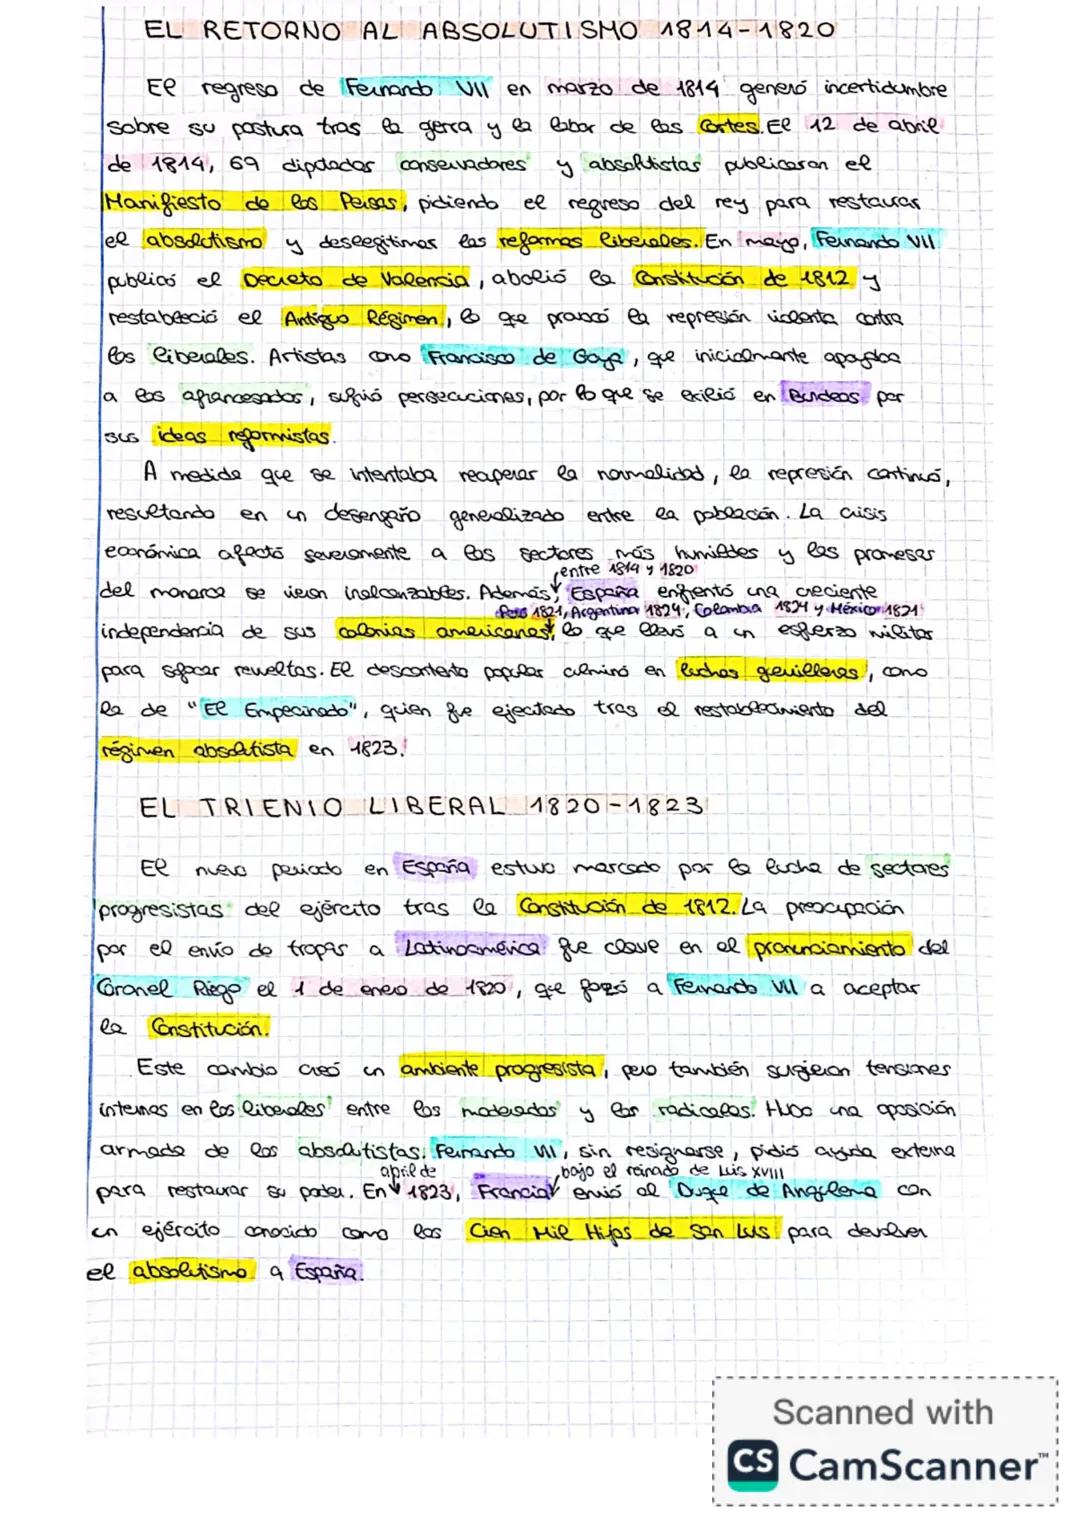 EL RETORNO AL ABSOLUTISMO 1814-1820
El regreso de Fernando VII en marzo de 1814 generó incertidumbre
sobre su postura tras la gerra y la labor de las Cortes. El 12 de abril
de 1814, 69 diputados conservadores y absolutistas publicaron el
Manifiesto de los Persas, pidiendo el regreso del rey para restaurar
el absolutismo y deslegitimar las reformas liberales. En mayo, Fernando VII
publicó el Decreto de Valencia, abolió la Constitución de 1812 y
restableció el Antiguo Régimen, lo que provocó la represión violenta contra
los liberales. Artistas como Francisco de Goya, que inicialmente apoyaba
a los afrancesados, sufrió persecuciones, por lo que se exilió en Burdeos por
sus ideas reformistas.
A medida que se intentaba recuperar la normalidad, la represión continuó,
resultando en un desengaño generalizado entre la población. La crisis
económica afectó severamente a los sectores más humildes y las promesas
entre 1814 y 1820
del monarca se vieron inalcanzables. Además, España enfrentó una creciente
Perú 1821, Argentina 1824, Colombia 1824 y México 1821
independencia de sus colonias americanas, lo que llevó a un esfuerzo militar
para sofocar revueltas. El descontento popular culminó en luchas guerilleras, como
la de "El Empecinado", quien fue ejecutado tras el restablecimiento del
régimen absolutista en 1823.
EL TRIENIO LIBERAL 1820-1823
El nuevo periodo en España estuvo marcado por la lucha de sectores
progresistas del ejército tras la Constitución de 1812. La preocupación
por el envío de tropas a Latinoamérica fue clave en el pronunciamiento del
Coronel Riego el 1 de enero de 1820, que forzó a Fernando VII a aceptar
la Constitución.
Este cambio creó un ambiente progresista, pero también surgieron tensiones
internas en los liberales entre los moderados y los radicales. Hubo una oposición
armada de los absolutistas. Fernando VII, sin resignarse, pidió ayuda externa
abril de
bajo el reinado de Luis XVIII
para restaurar su poder. En 1823, Francia envió al Duque de Angulema con
un ejército conocido como los Cien Mil Hijos de San Luis para devolver
el absolutismo a España.
Scanned with
CS CamScanner™